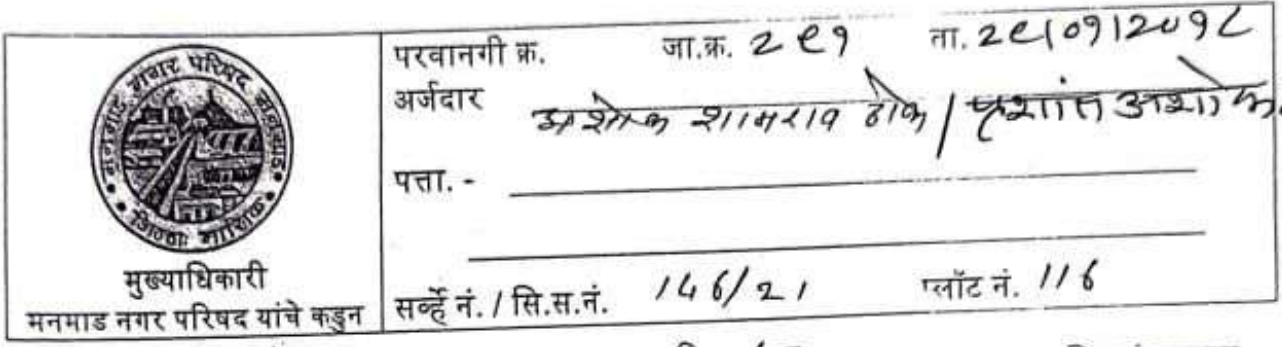 मनमाड नगर परिषद मनमाड
जिल्हा नाशिक
मुख्याधिकारी
मनमाड नगर परिषद यांचे कडुन
परवानगी क्र. जा.क्र. 2९9 ता. 2९/09/209८
अर्जदार अशोक शामराव ढोके / प्रशांत अशोक
पत्ता. -
सर्व्हे नं. / सि.स.नं. 146/21 प्लॉट नं. 116